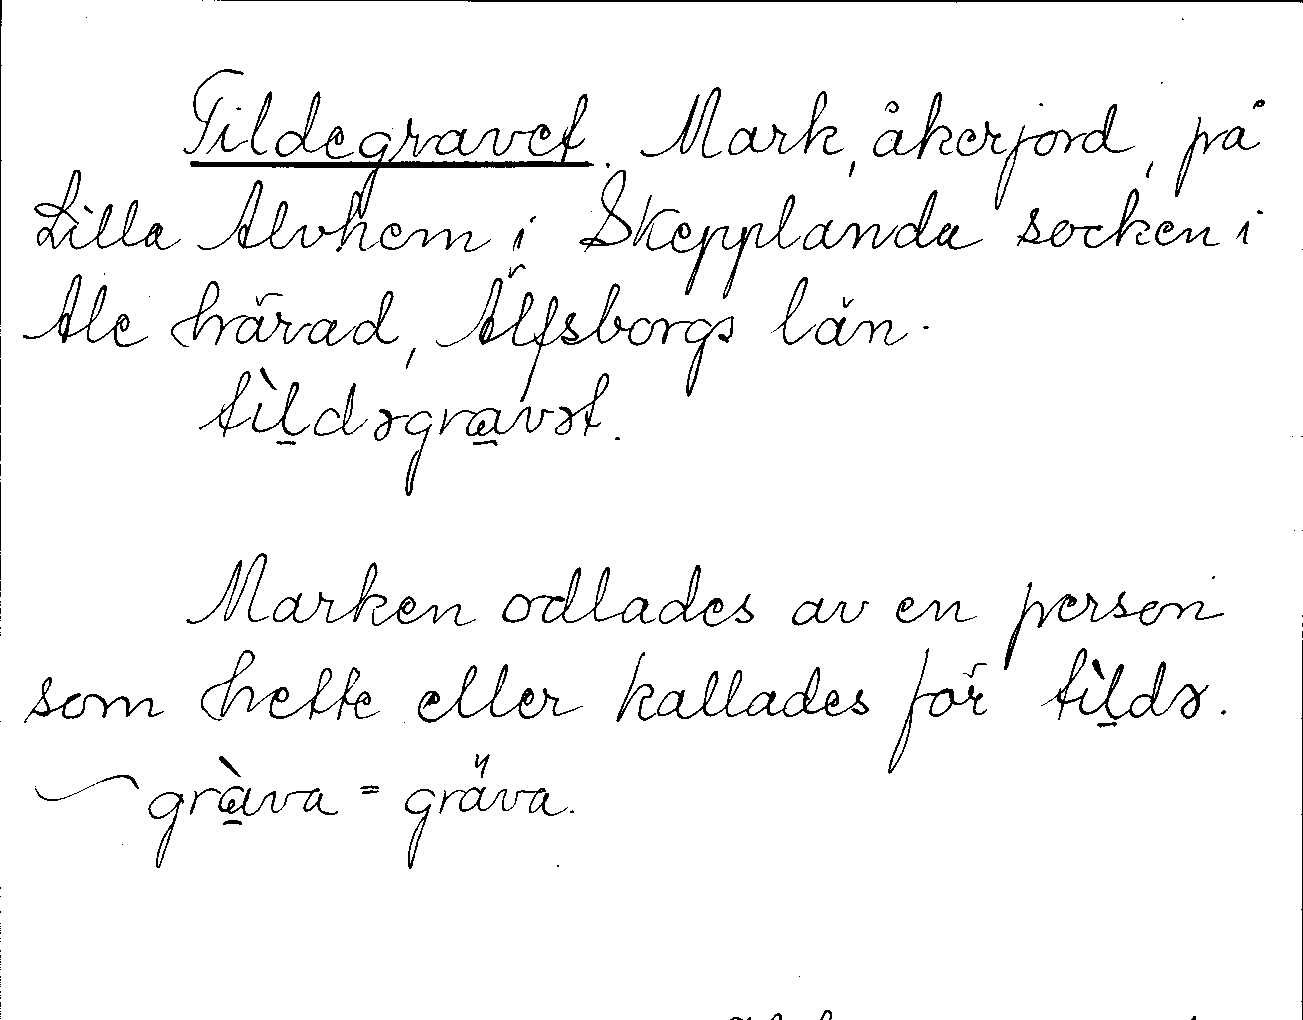 Tildegravet. Mark, åkerjord, på
Lilla Alvhem i Skepplanda socken i
Ale härad, Älfsborgs län.
tìl̲dəgra̲vət.
Marken odlades av en person
som hette eller kallades för tìl̲də.
⁓ grà̲va = gräva.